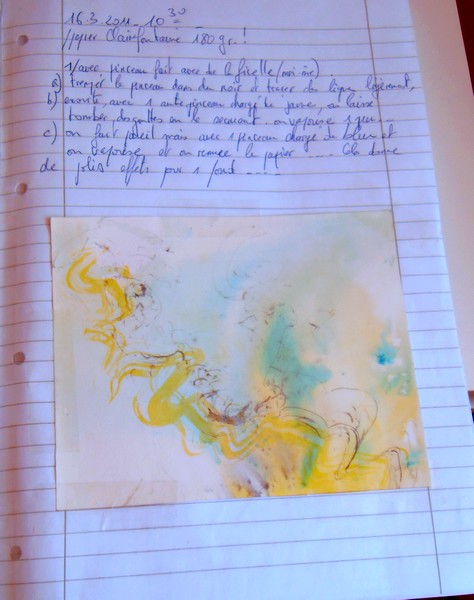 16.3.2011_ 10 30 _
papier Clairefontaine 180 gr. !
1/ avec pinceau fait avec de la ficelle (moi-même).
a) tremper le pinceau dans du noir et tracer des lignes légèrement,
b) ensuite, avec 1 autre pinceau chargé de jaune, on laisse
tomber des gouttes en le secouant. on vaporise 1 peu --
c) on fait pareil mais avec 1 pinceau chargé de bleu et
on vaporise et on remue le papier .... Cela donne
de jolis effets pour 1 fond ....